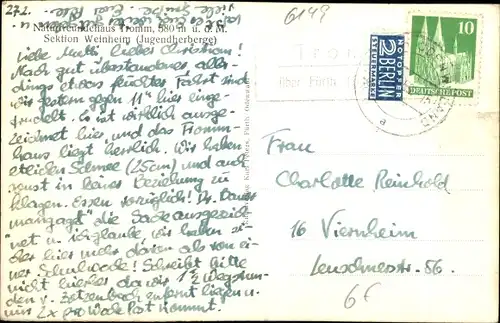 27.2.
6149
Naturfreundehaus Tromm, 580 m ü. d. M.
Sektion Weinheim (Jugendherberge)
Liebe Mutti, lieber
Nach gut überstandener, aller-
dings etwas feuchter Fahrt sind
wir gestern gegen 11 hier einge-
trudelt. Es ist wirklich ausge-
zeichnet hier und das Tromm-
haus liegt herrlich. Wir haben
Schnee (25cm) und auch
sonst in keiner Beziehung zu
klagen. Essen vorzüglich! Dr. Bauer
"managt" die Sache ausgezeich-
net u. ich glaube, wir haben
hier mehr davon als von ei-
ner Schulwoche! Schreibt bitte
nicht hierher da wir 1½ Wegstun-
den v. Zotzenbach entfernt liegen u.
nur 2 x pro Woche Post kommt.
Trom
über Fürth
NOTOPFER
2 BERLIN
STEUERMARKE
10
DEUTSCHE POST
a
Frau
Charlotte Reinhold
16 Viernheim
86.
6F